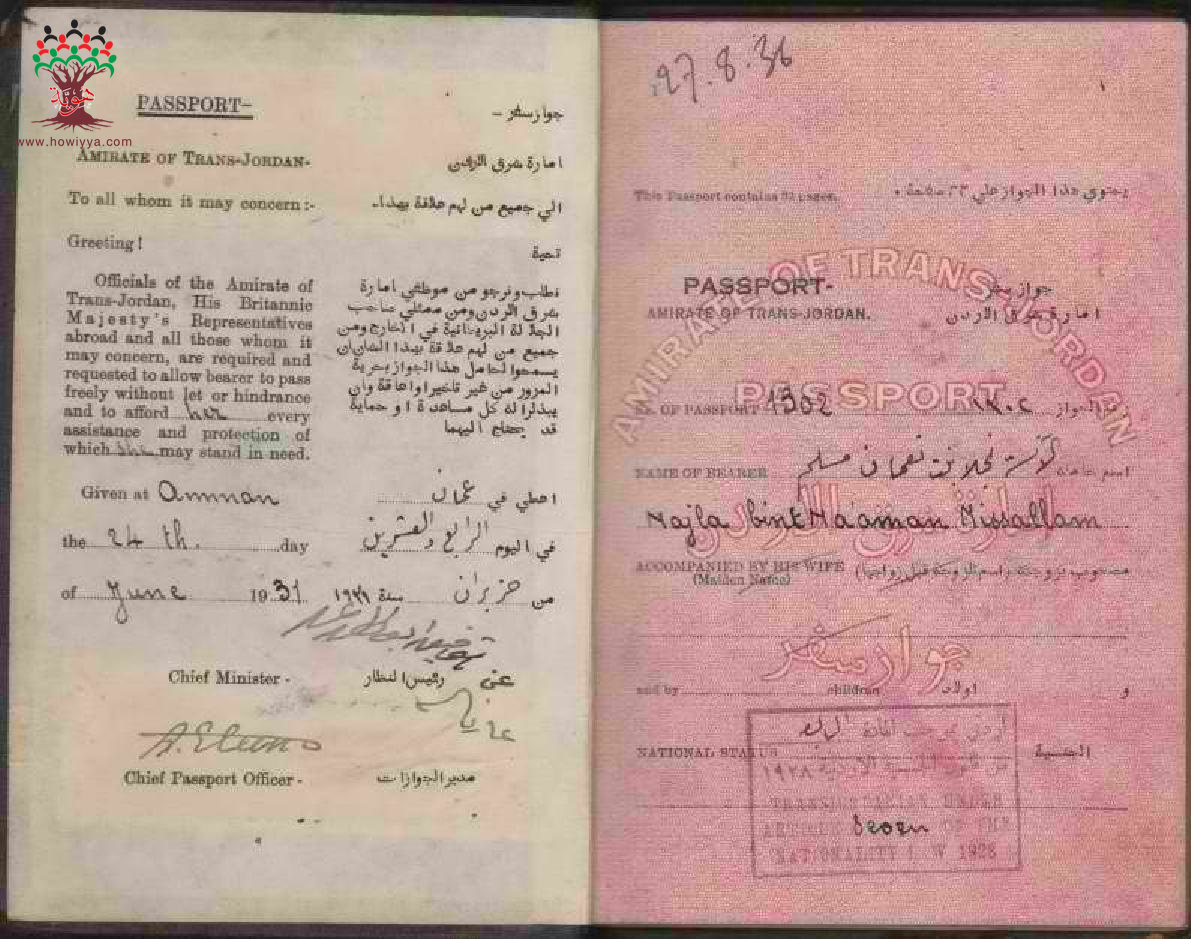 هوية
www.howiyya.com
PASSPORT-
جواز سفر -
AMIRATE OF TRANS-JORDAN-
امارة شرق الاردن
To all whom it may concern :-
الي جميع من لهم علاقة بهذا-
Greeting !
تحية
Officials of the Amirate of
Trans-Jordan, His Britannic
Majesty's Representatives
abroad and all those whom it
may concern, are required and
requested to allow bearer to pass
freely without let or hindrance
and to afford her every
assistance and protection of
which she may stand in need.
نطلب ونرجو من موظفي امارة
شرق الاردن ومن ممثلي صاحب
الجلالة البريطانية في الخارج ومن
جميع من لهم علاقة بهذا الشان ان
يسمحوا لحامل هذا الجواز بحرية
المرور من غير تاخير او اعاقة وان
يبذلوا له كل مساعدة او حماية
قد يحتاج اليهما
Given at Amman
اعطي في عمان
the 24 th. day
في اليوم الرابع والعشرين
of June 1931
من حزيران سنة ١٩٣١
Chief Minister -
عن رئيس النظار
A. Elunno
Chief Passport Officer -
مدير الجوازات
27.8.36
١
This Passport contains 32 pages.
يحتوي هذا الجواز علي ٣٢ صفحة .
AMIRATE OF TRANS-JORDAN
PASSPORT
PASSPORT-
جواز سفر
AMIRATE OF TRANS-JORDAN.
امارة شرق الاردن
NO. OF PASSPORT 1302
الجواز ١٣٠٢
NAME OF BEARER
اسم حامله الآنسة نجلا بنت نعمان مسلم
Najla bint Naaman Missallam
امارة شرق الاردن
ACCOMPANIED BY HIS WIFE
(Maiden Name)
مصحوب بزوجته (اسم الزوجة قبل زواجها)
جواز سفر
and by children
و اولاد
NATIONAL STATUS
الجنسية
اردني بموجب المادة السابعة
من قانون الجنسية الاردنية ١٩٢٨
TRANSJORDANIAN UNDER
ARTICLE Seven OF THE
NATIONALITY LAW 1928